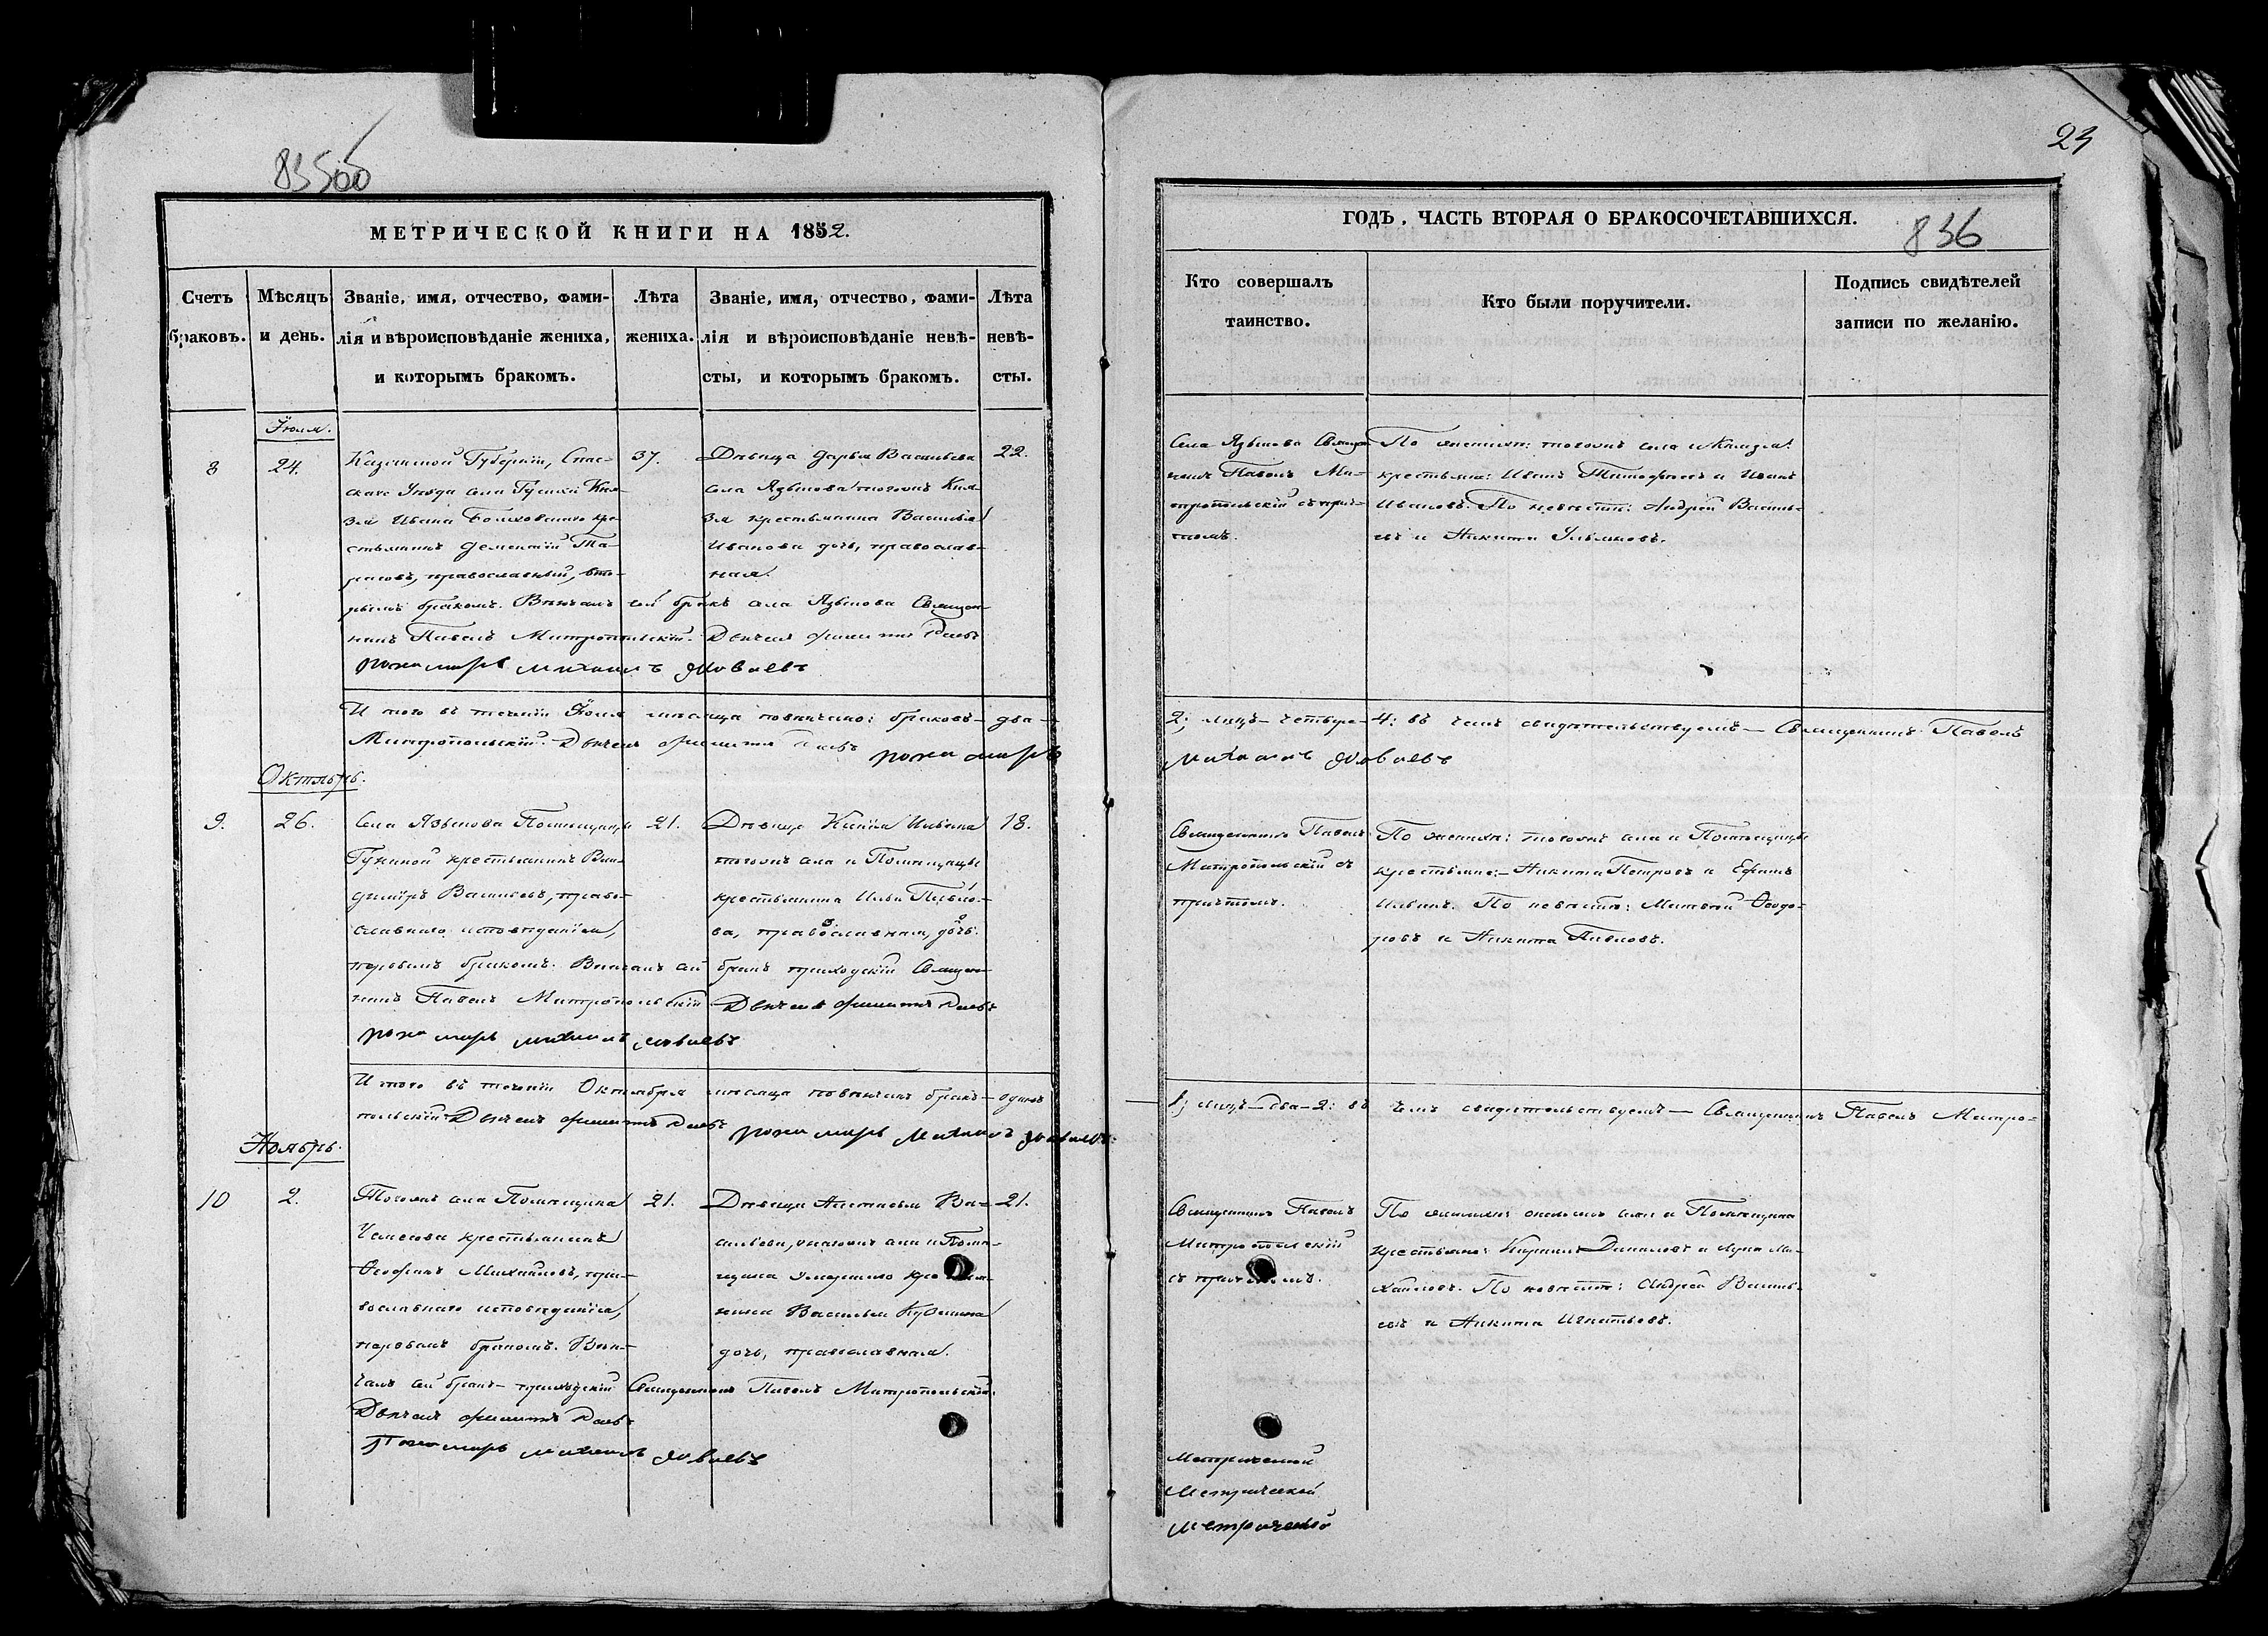 835об
МЕТРИЧЕСКОЙ КНИГИ НА 1852.
Счетъ браковъ.
Мѣсяцъ и день.
Званіе, имя, отчество, фами-
лія и вѣроисповѣданіе жениха,
и которымъ бракомъ.
Лѣта
жениха.
Званіе, имя, отчество, фами-
лія и вѣроисповѣданіе невѣ-
сты, и которымъ бракомъ.
Лѣта
невѣ-
сты.
Іюля.
8
24.
Казанской Губерніи, Спас-
скаго Уѣзда села Кня-
зя Ивана кре-
стьянинъ Дементій Та-
расовъ, православный, вто-
рымъ бракомъ. Вѣнчалъ сей бракъ села Языкова Священ-
никъ Павелъ Митропольскій. Дьячекъ
пономарь михаилъ
37.
Дѣвица Дарья Васильева
села Языкова тогожъ Кня-
зя крестьянина Василья
Иванова дочь, православ-
ная.
22.
И того въ теченіи Іюля мѣсяца повѣнчано: браковъ — два —
Митропольскій. Дьячекъ пономарь
Октябрь.
9.
26.
Села Языкова Помѣщицы
крестьянинъ Вла-
диміръ Васильевъ, право-
славнаго исповѣданія,
первымъ бракомъ. Вѣнчалъ сей бракъ приходскій Священ-
никъ Павелъ Митропольскій. Дьячекъ
пономарь михаилъ
21.
Дѣвица Ксенія Ильина
тогожъ села и Помѣщицы
крестьянина Ильи Павло-
ва, православная, дочь.
18.
И того въ теченіи Октября мѣсяца повѣнчанъ бракъ — одинъ
польскій. Дьячекъ пономарь Михаилъ
Ноябрь.
10
2.
Тогожъ села Помѣщика
крестьянинъ
Ѳеофанъ Михайловъ, пра-
вославнаго исповѣданія,
первымъ бракомъ. Вѣн-
чалъ сей бракъ приходскій Священникъ Павелъ Митропольскій.
Дьячекъ
Пономарь михаилъ
21.
Дѣвица Настасья Ва-
сильева, тогожъ села и Помѣ-
щика умершаго крестьян-
нина Василья Кузмина
дочь, православная.
21.
23
836
ГОДЪ, ЧАСТЬ ВТОРАЯ О БРАКОСОЧЕТАВШИХСЯ.
Кто совершалъ
таинство.
Кто были поручители.
Подпись свидѣтелей
записи по желанію.
Села Языкова Священ-
никъ Павелъ Ми-
тропольскій съ при-
чтомъ.
По женихѣ: тогожъ села и Князя
крестьяне: Иванъ Тимофеевъ и Иванъ
Ивановъ. По невѣстѣ: Андрей Василь-
евъ и Никита Ульяновъ.
2; лицъ — четыре — 4: въ чемъ свидѣтельствуемъ — Священникъ Павелъ
Михаилъ
Священникъ Павелъ
Митропольскій съ
причтомъ.
По женихѣ: тогожъ села и Помѣщицы
крестьяне: — Никита Петровъ и Ефимъ
Ильинъ. По невѣстѣ: Матвей Ѳедо-
ровъ и Никита Павловъ.
1; лицъ — два — 2: въ чемъ свидѣтельствуемъ — Священникъ Павелъ Митро-
Священникъ Павелъ
Митропольскій
съ причтомъ.
По женихѣ: тогожъ села и Помѣщика
крестьяне: Даниловъ и Лука Ми-
хайловъ. По невѣстѣ: Андрей Василь-
евъ и Никита Игнатьевъ.
Метрической
Метрической
метрической